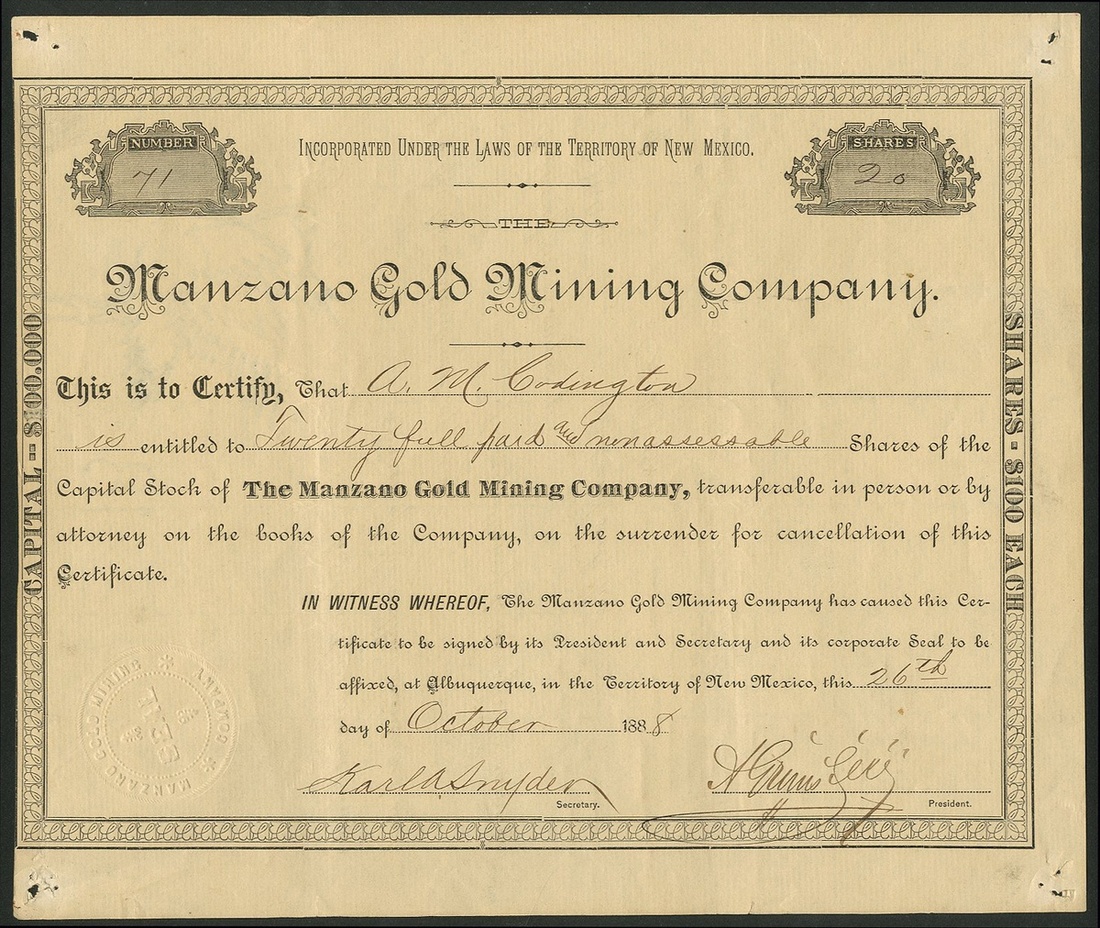 INCORPORATED UNDER THE LAWS OF THE TERRITORY OF NEW MEXICO.
NUMBER
71
SHARES
20
THE
Manzano Gold Mining Company.
This is to Certify, That A. M. Codington
is entitled to Twenty full paid and nonassessable Shares of the
Capital Stock of The Manzano Gold Mining Company, transferable in person or by
attorney on the books of the Company, on the surrender for cancellation of this
Certificate.
IN WITNESS WHEREOF, The Manzano Gold Mining Company has caused this Cer-
tificate to be signed by its President and Secretary and its corporate Seal to be
affixed, at Albuquerque, in the Territory of New Mexico, this 26th
day of October 1888
Karl A Snyder
Secretary.
President.
CAPITAL--$100.000
SHARES-$100 EACH
MANZANO GOLD MINING COMPANY
SEAL